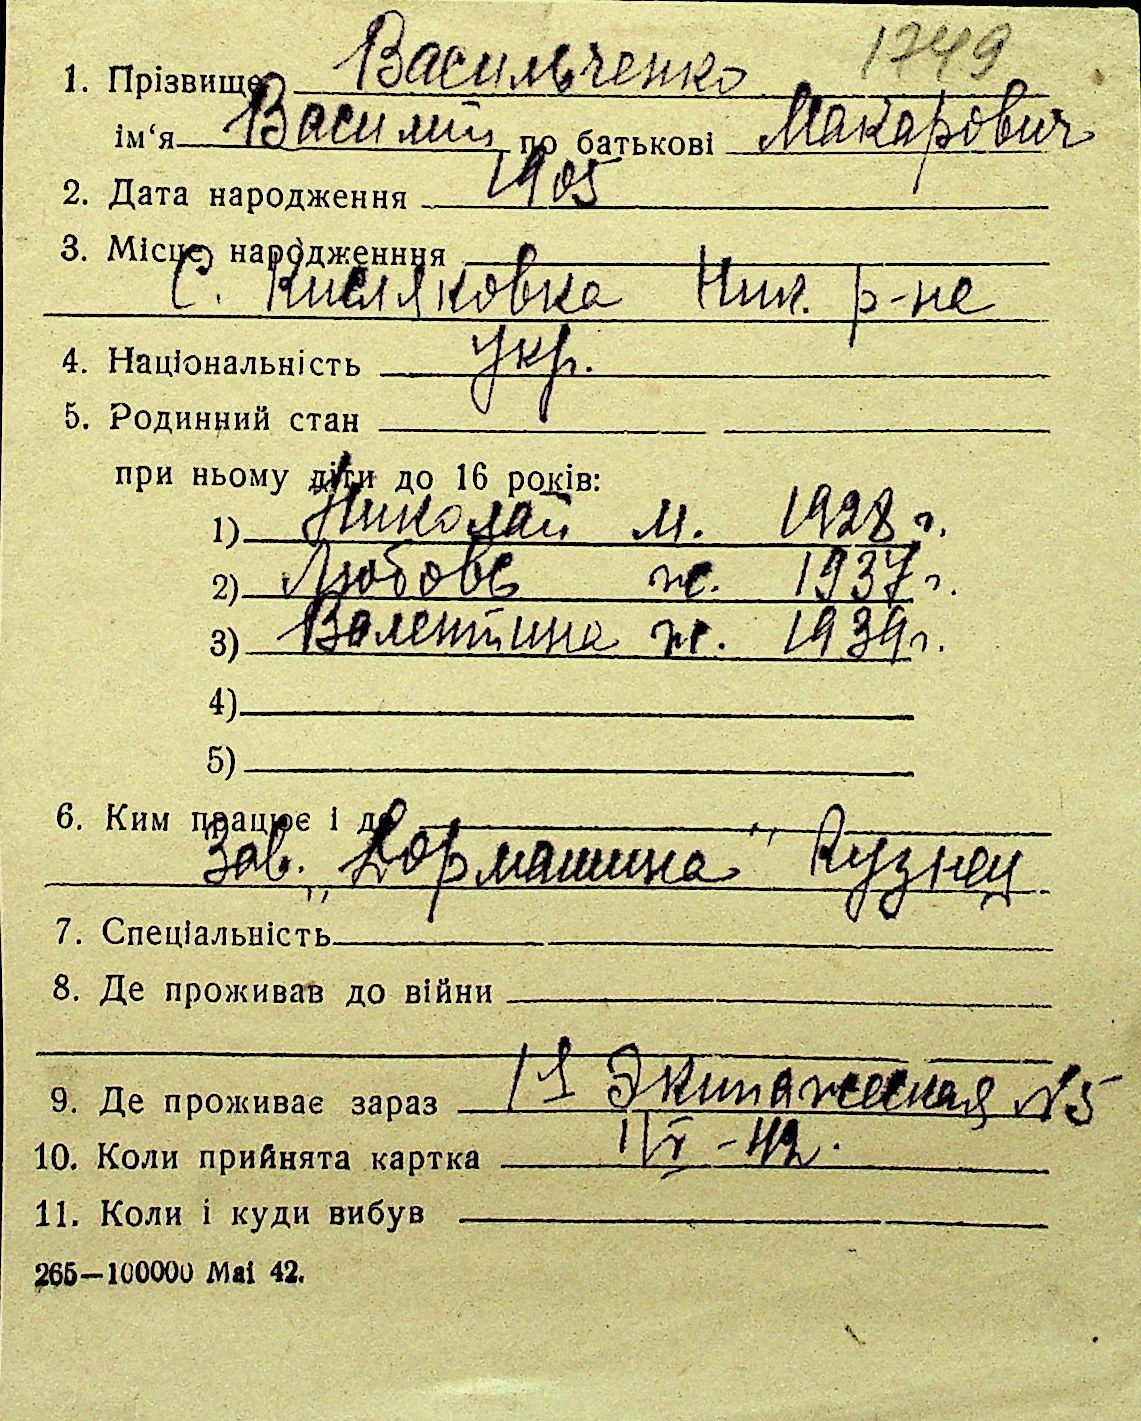 1749
1. Прізвище Васильченко
ім‘я Василий по батькові Макарович
2. Дата народження 1905
3. Місце народженння
С. Кисляковка Ник. р-на
4. Національність укр.
5. Родинний стан
при ньому діти до 16 років:
1) Николай м. 1928 г.
2) Любовь ж. 1937 г.
3) Валентина ж. 1939 г.
4)
5)
6. Ким працює і де
Зав. „Дормашина" Кузнец
7. Спеціальність
8. Де проживав до війни
9. Де проживає зараз Экипажеская №5
10. Коли прийнята картка
11. Коли і куди вибув
265—100000 Маі 42.